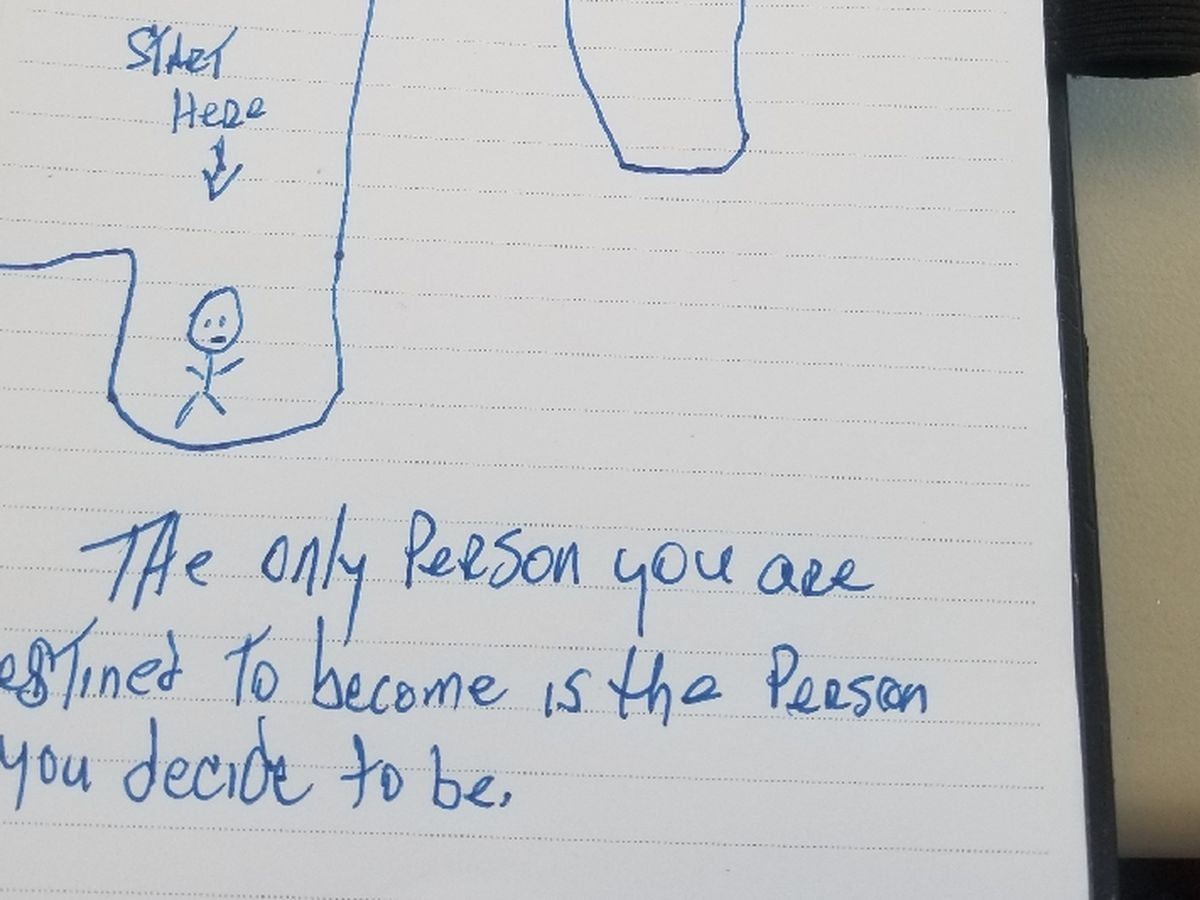 START
HeRe
THe only PeRSon you aRe
esTined To become is the PeRson
you decide to be.